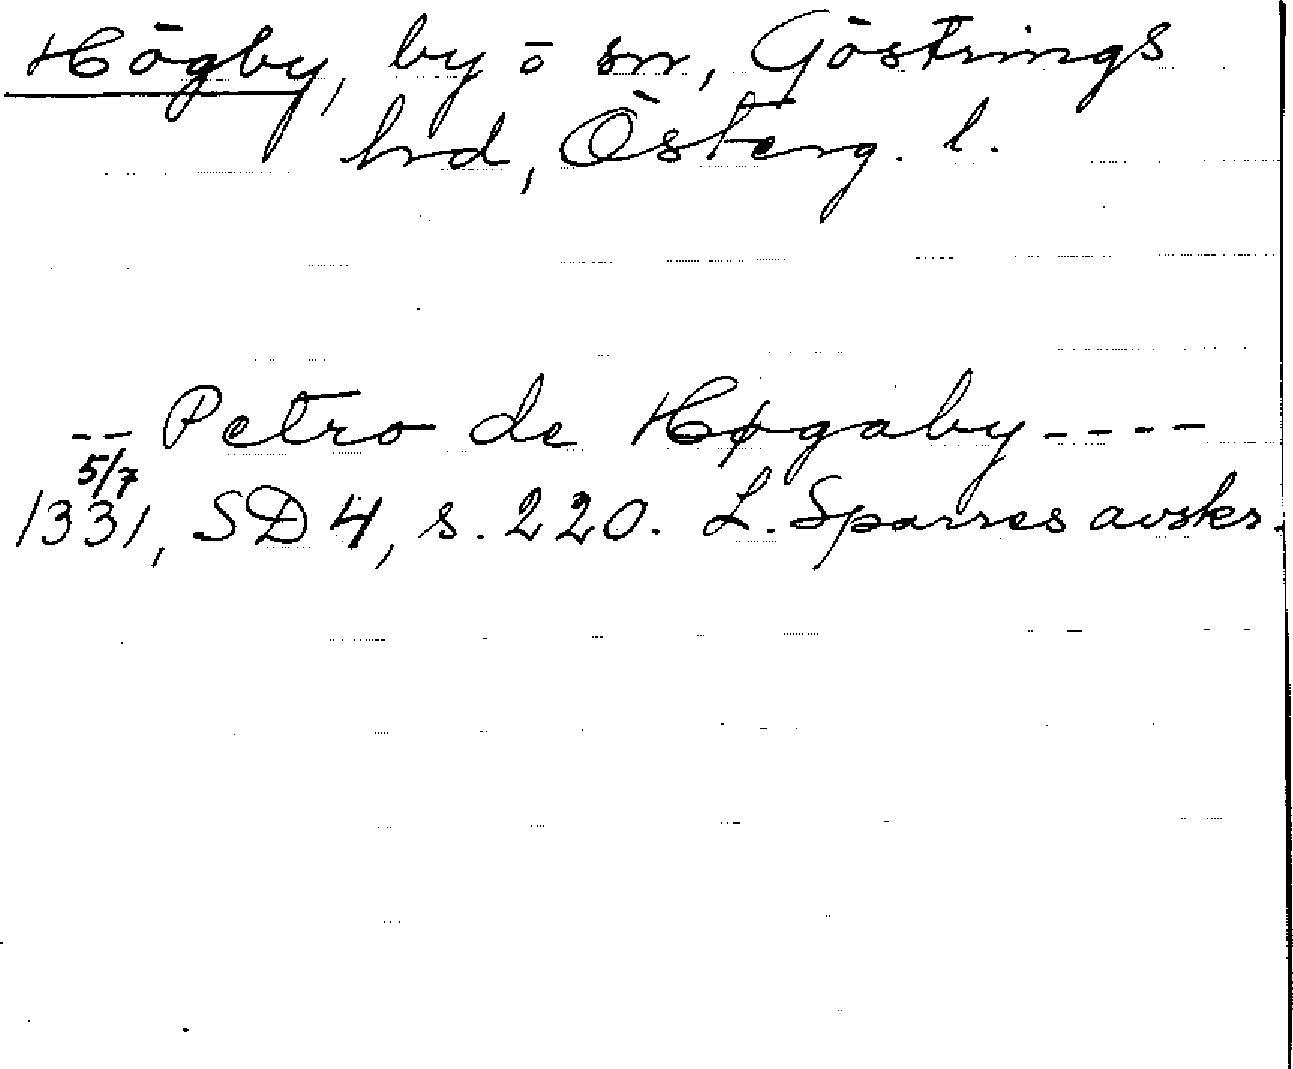 Högby, by o sn, Göstrings
hrd, Österg. l.
-- Petro de Høgaby ----
5/7
1331, SD 4, s. 220. L. Sparres avskr.